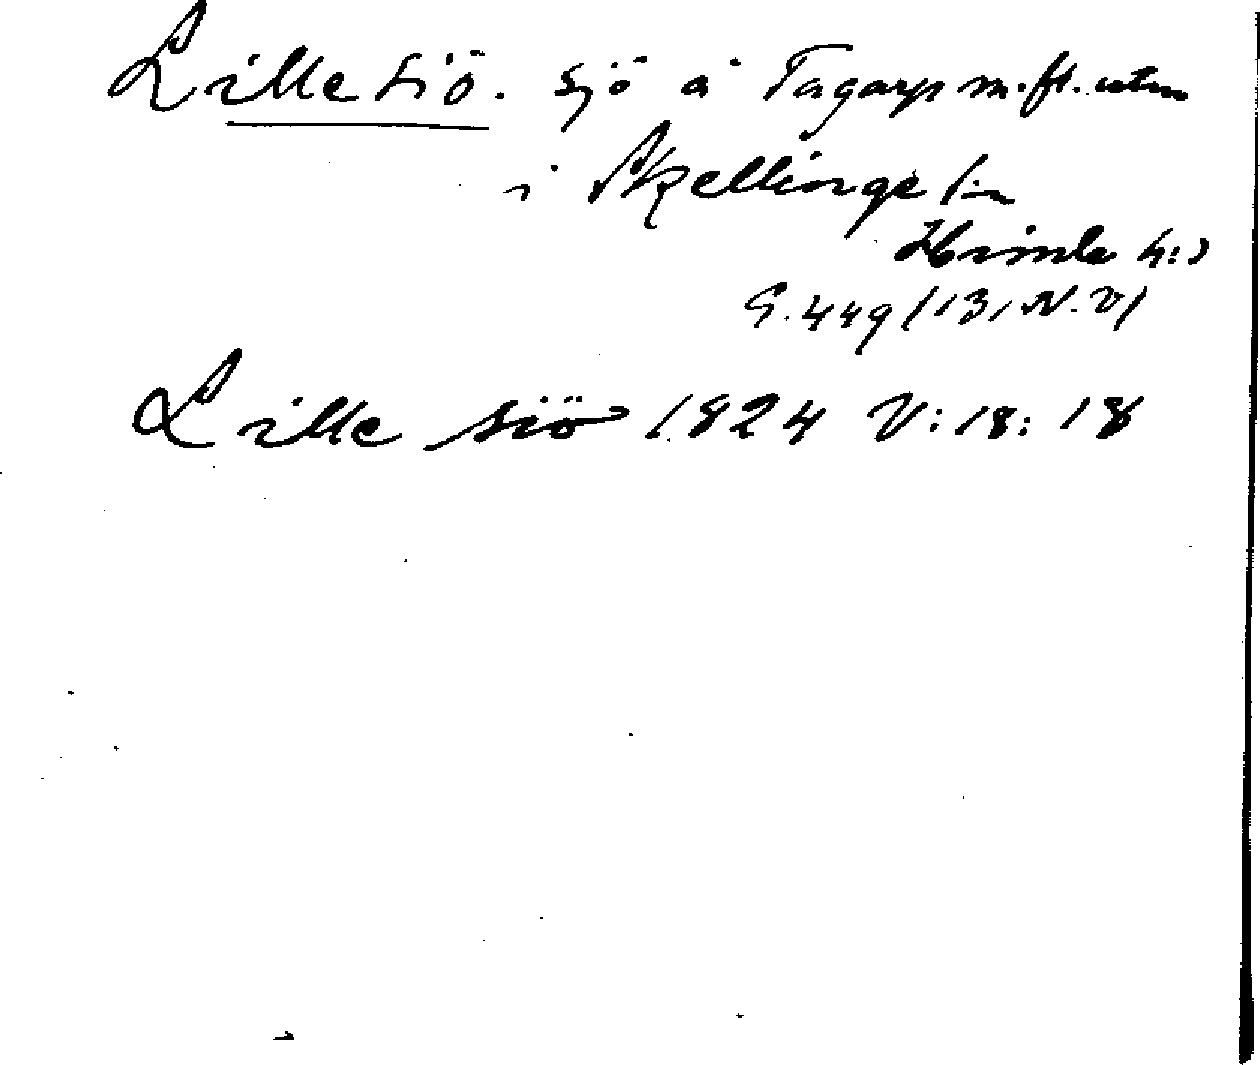 Lille siö. Sjö å Tågarp m.fl. utm
i Skellinge sn
Himle hd
G. 449 (13, N.V)
Lille siö 1824 V:18:18